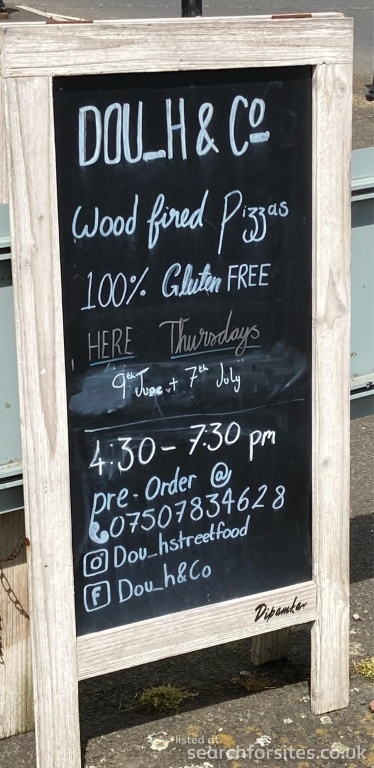 DOU_H & Co
Wood fired Pizzas
100% Gluten FREE
HERE Thursdays
9th June + 7th July
4:30 - 7:30 pm
pre-Order @
07507834628
Dou_hstreetfood
Dou_h&Co
Dipamkar
listed at
searchforsites.co.uk